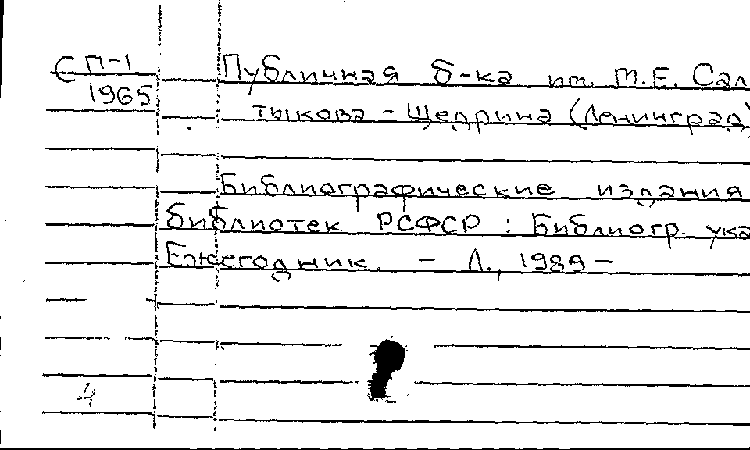 СП-1
1965
Публичная б-ка им. М.Е. Сал
тыкова-Щедрина (Ленинград)
Библиографические издания
библиотек РСФСР : Библиогр. ука
Ежегодник. - Л., 1989-
4